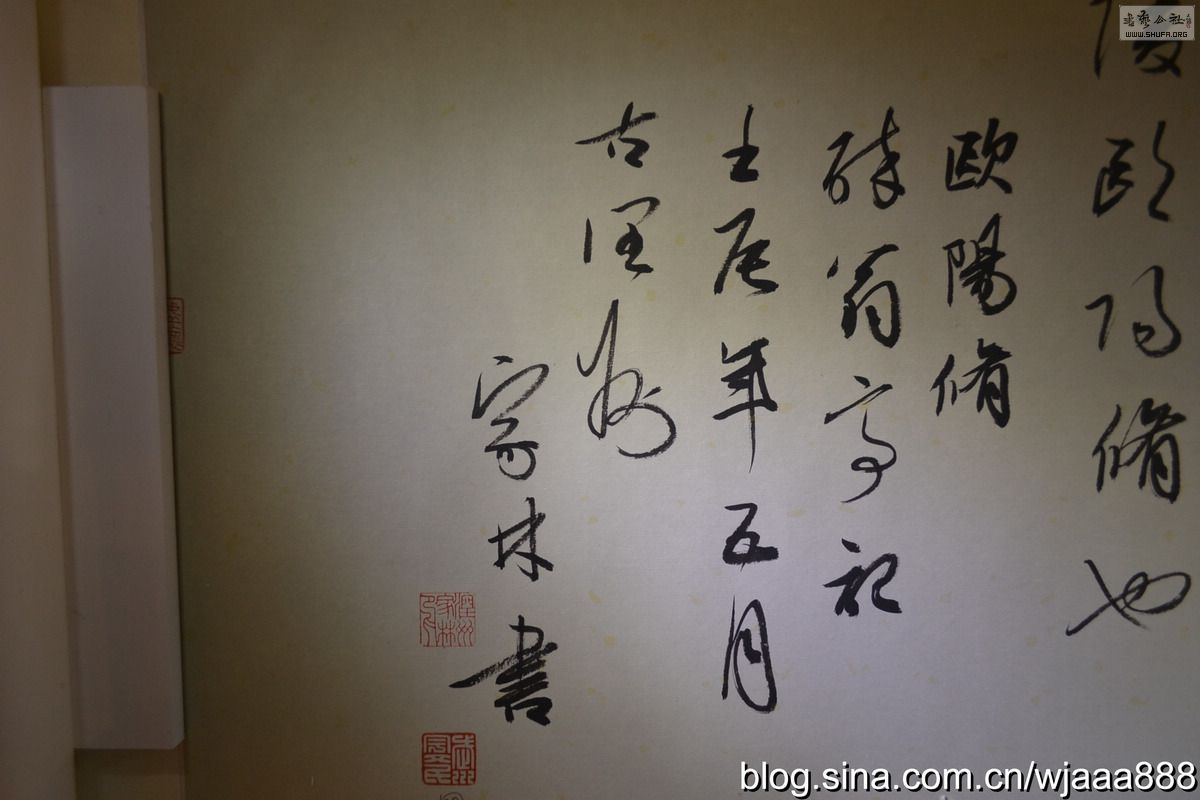 陵歐陽脩也
歐陽脩
醉翁亭記
壬辰年五月
古潤州
家林書
書藝公社
WWW.SHUFA.ORG
blog.sina.com.cn/wjaaa888